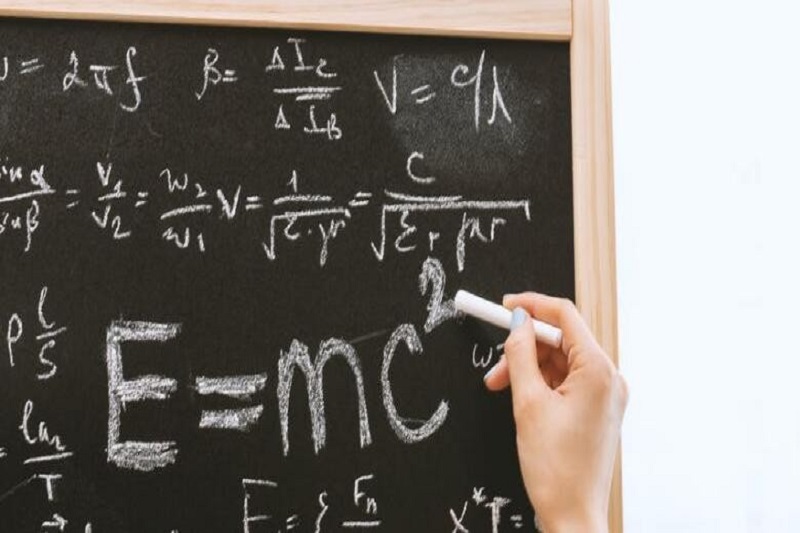 = 2πf β= ΔI_c/ΔI_B V = c/λ
sin α/sin β = V₁/V₂ = w₂/w₁ V = 1/√ε·μ = c/√εr μr
ρ l/S
E=mc²
T
E = Fn
x*T=